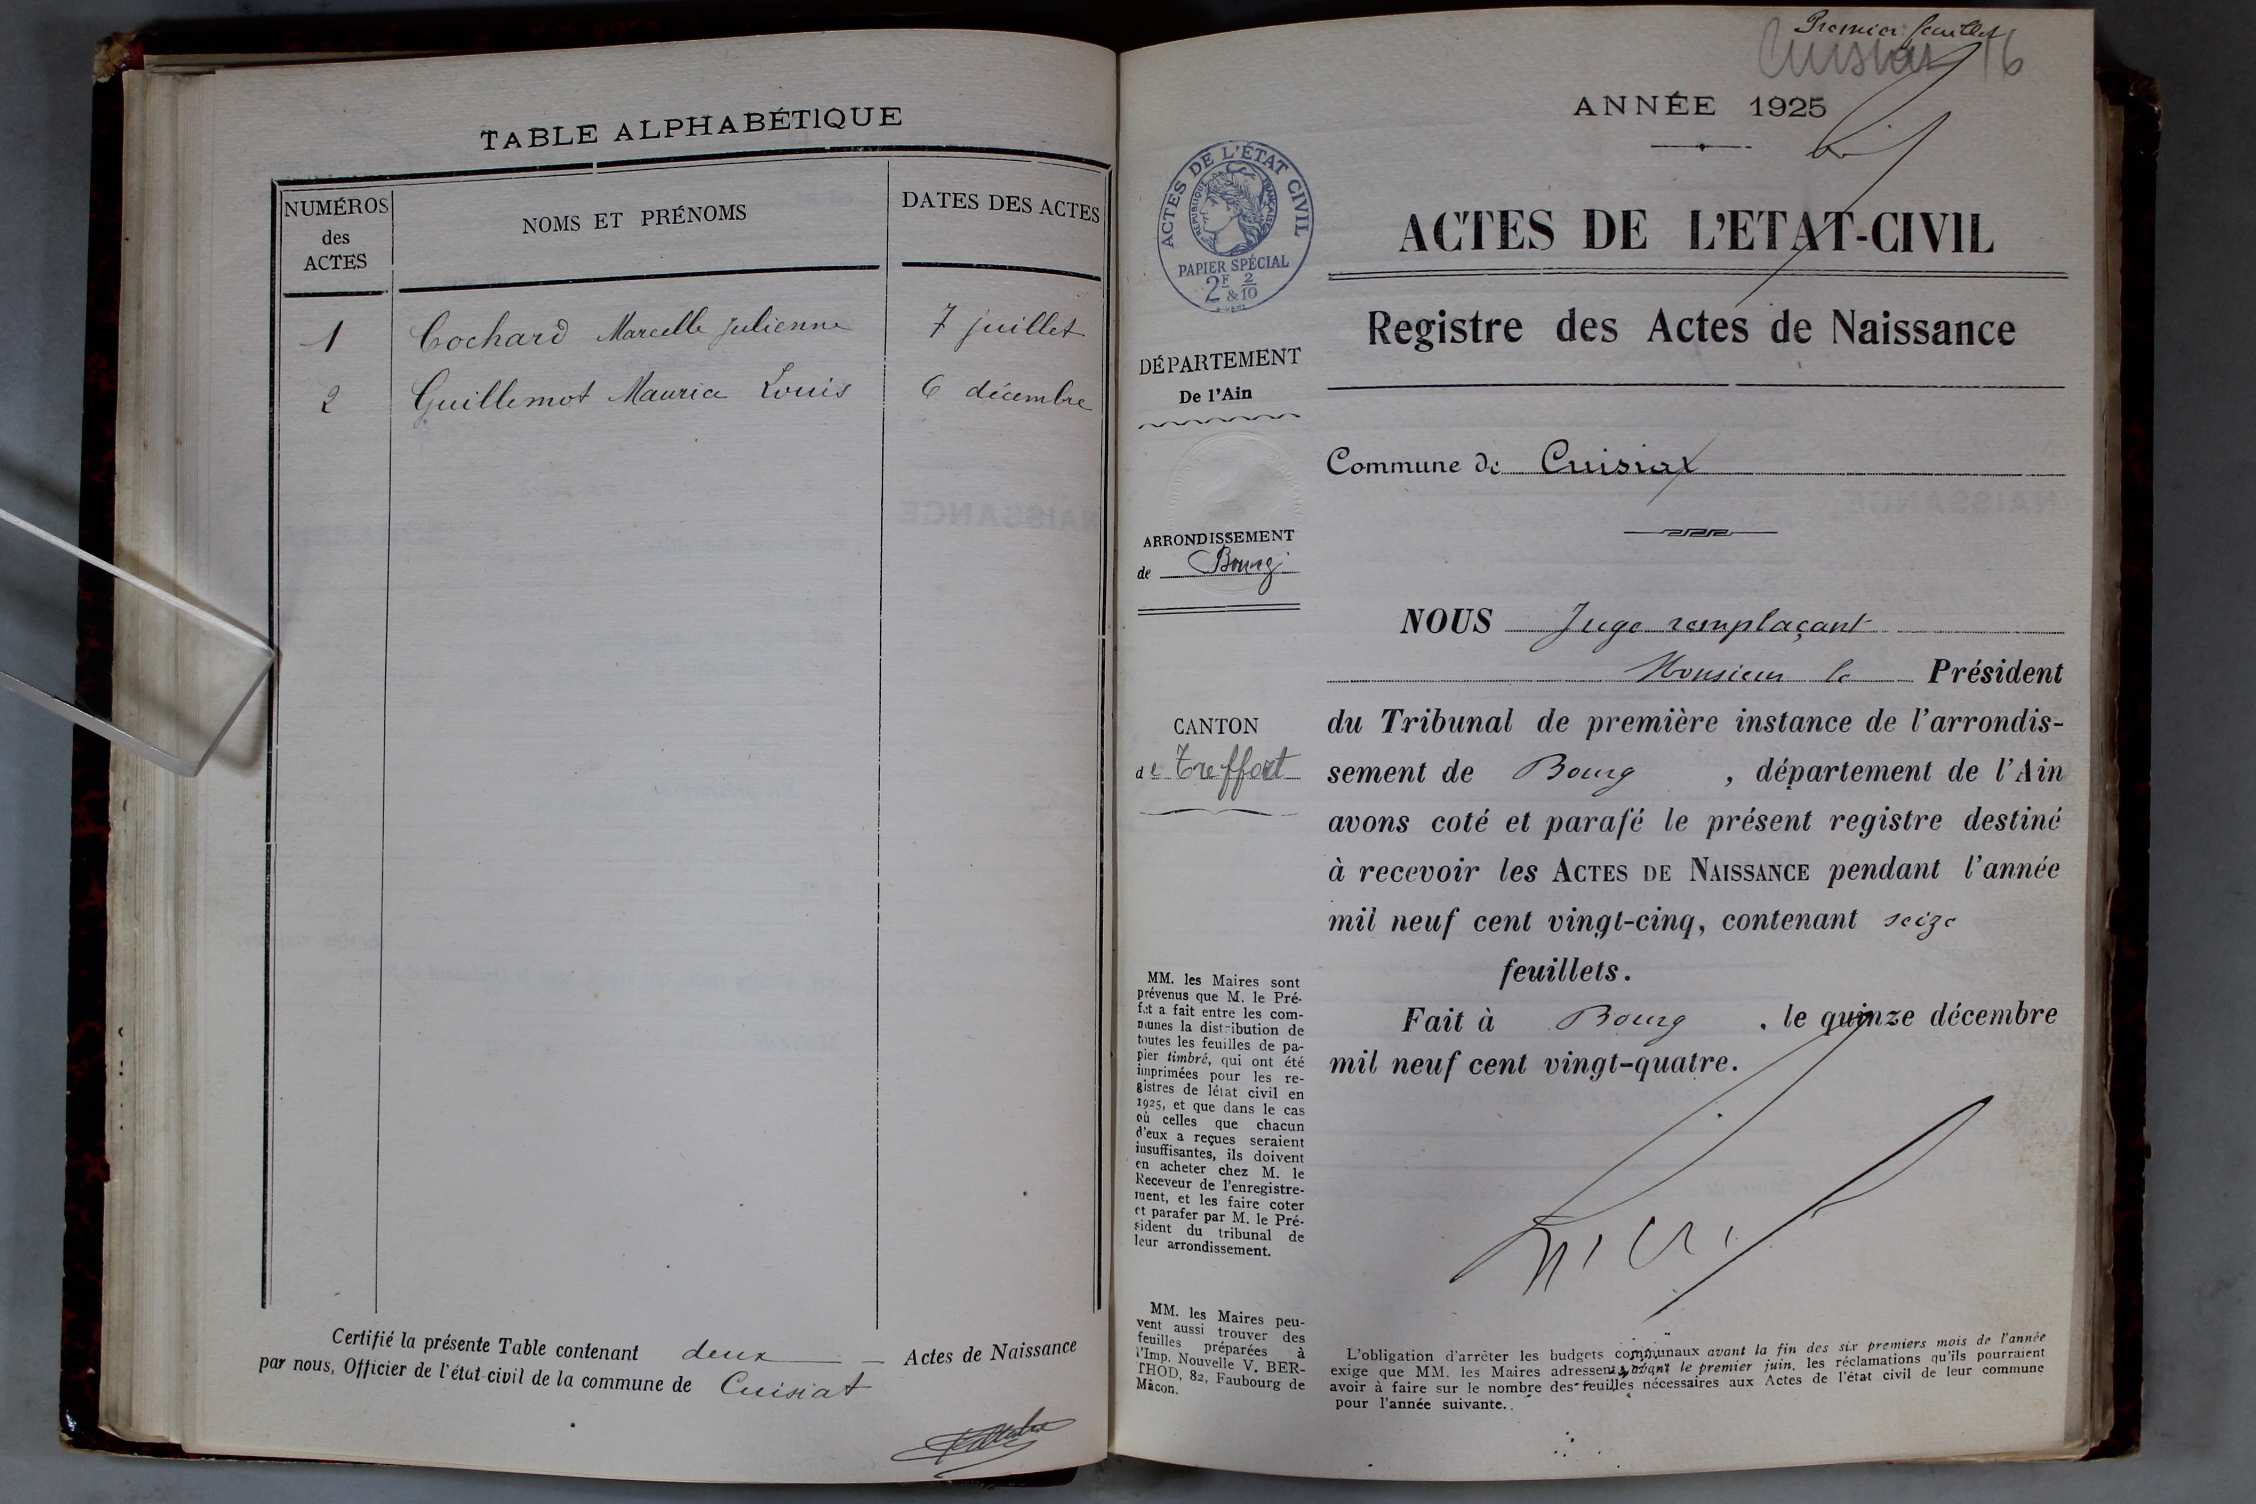 TABLE ALPHABÉTIQUE
NUMÉROS
des
ACTES
NOMS ET PRÉNOMS
DATES DES ACTES
1 Cochard Marcelle Julienne 7 juillet
2 Guillemot Maurice Louis 6 décembre
Certifié la présente Table contenant deux Actes de Naissance
par nous, Officier de l'état-civil de la commune de Cuisiat
Premier feuillet
Cuisiat 16
ANNÉE 1925
ACTES DE L'ÉTAT CIVIL
RÉPUBLIQUE FRANÇAISE
PAPIER SPÉCIAL
2F & 2/10
ACTES DE L'ETAT-CIVIL
Registre des Actes de Naissance
DÉPARTEMENT
De l'Ain
Commune de Cuisiat
ARRONDISSEMENT
de Bourg
CANTON
de Treffort
NOUS Juge remplaçant
Monsieur le Président
du Tribunal de première instance de l'arrondis-
sement de Bourg , département de l'Ain
avons coté et parafé le présent registre destiné
à recevoir les ACTES DE NAISSANCE pendant l'année
mil neuf cent vingt-cinq, contenant seize
feuillets.
Fait à Bourg , le quinze décembre
mil neuf cent vingt-quatre.
MM. les Maires sont
prévenus que M. le Pré-
fet a fait entre les com-
munes la distribution de
toutes les feuilles de pa-
pier timbré, qui ont été
imprimées pour les re-
gistres de létat civil en
1925, et que dans le cas
où celles que chacun
d'eux a reçues seraient
insuffisantes, ils doivent
en acheter chez M. le
Receveur de l'enregistre-
ment, et les faire coter
et parafer par M. le Pré-
sident du tribunal de
leur arrondissement.
MM. les Maires peu-
vent aussi trouver des
feuilles préparées à
l'Imp. Nouvelle V. BER-
THOD, 82, Faubourg de
Mâcon.
L'obligation d'arrêter les budgets communaux avant la fin des six premiers mois de l'année
exige que MM. les Maires adressent, avant le premier juin, les réclamations qu'ils pourraient
avoir à faire sur le nombre des feuilles nécessaires aux Actes de l'état civil de leur commune
pour l'année suivante.